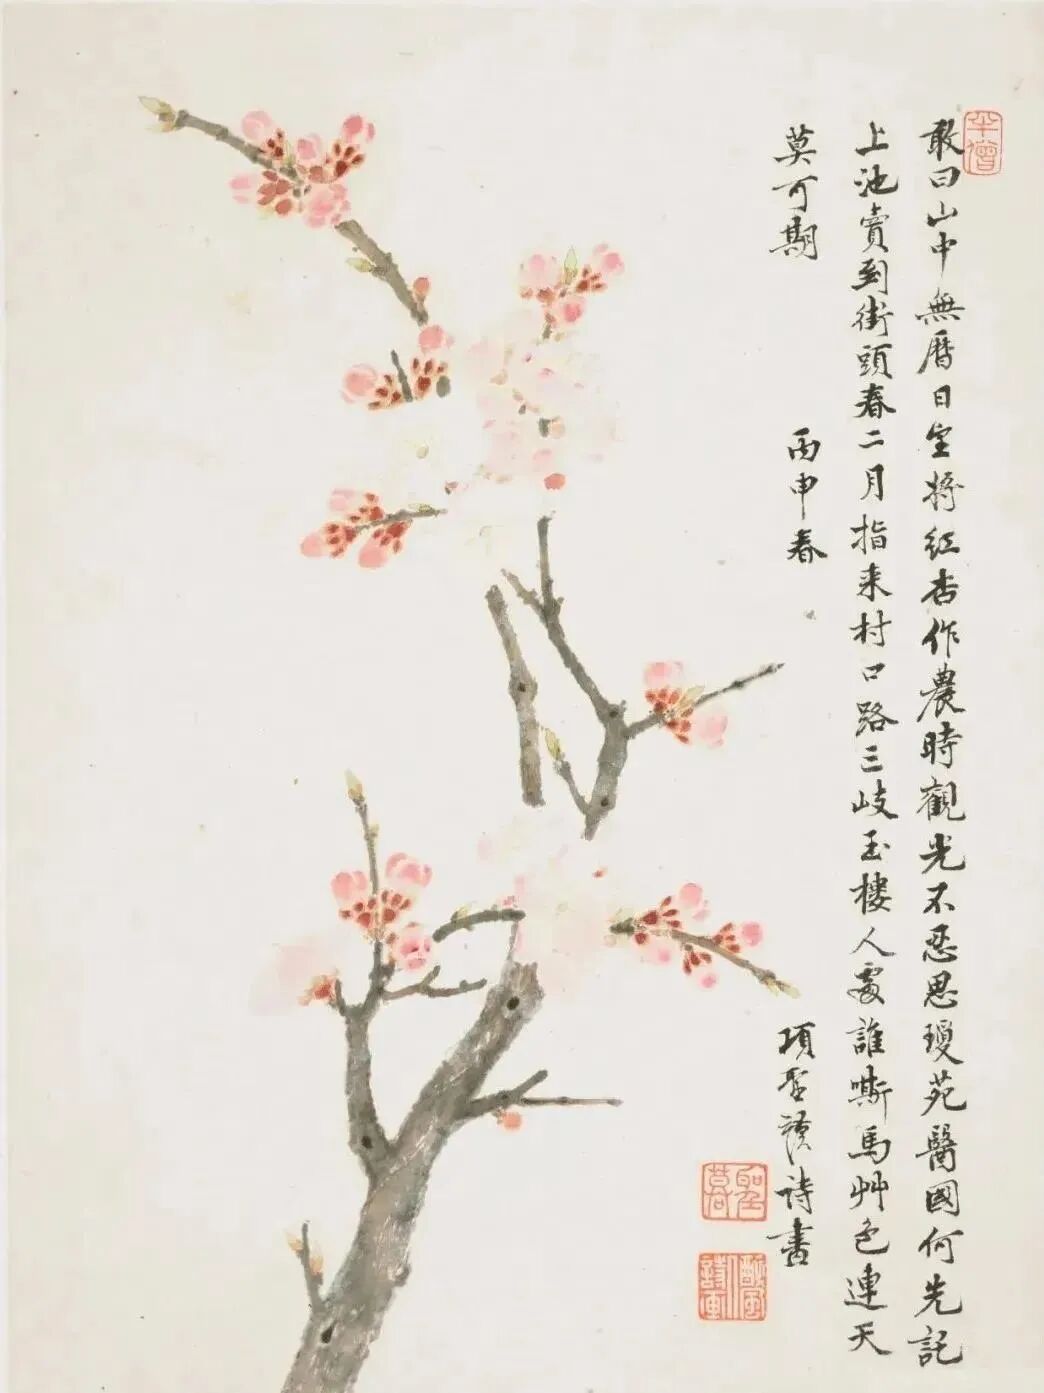 敢曰山中無曆日宜將紅杏作農時觀光不忍思瓊苑醫國何先託
上池賣到街頭春二月指来村口路三岐玉樓人處誰嘶馬艸色連天
莫可期 丙申春 項聖謨詩畫
聖謩